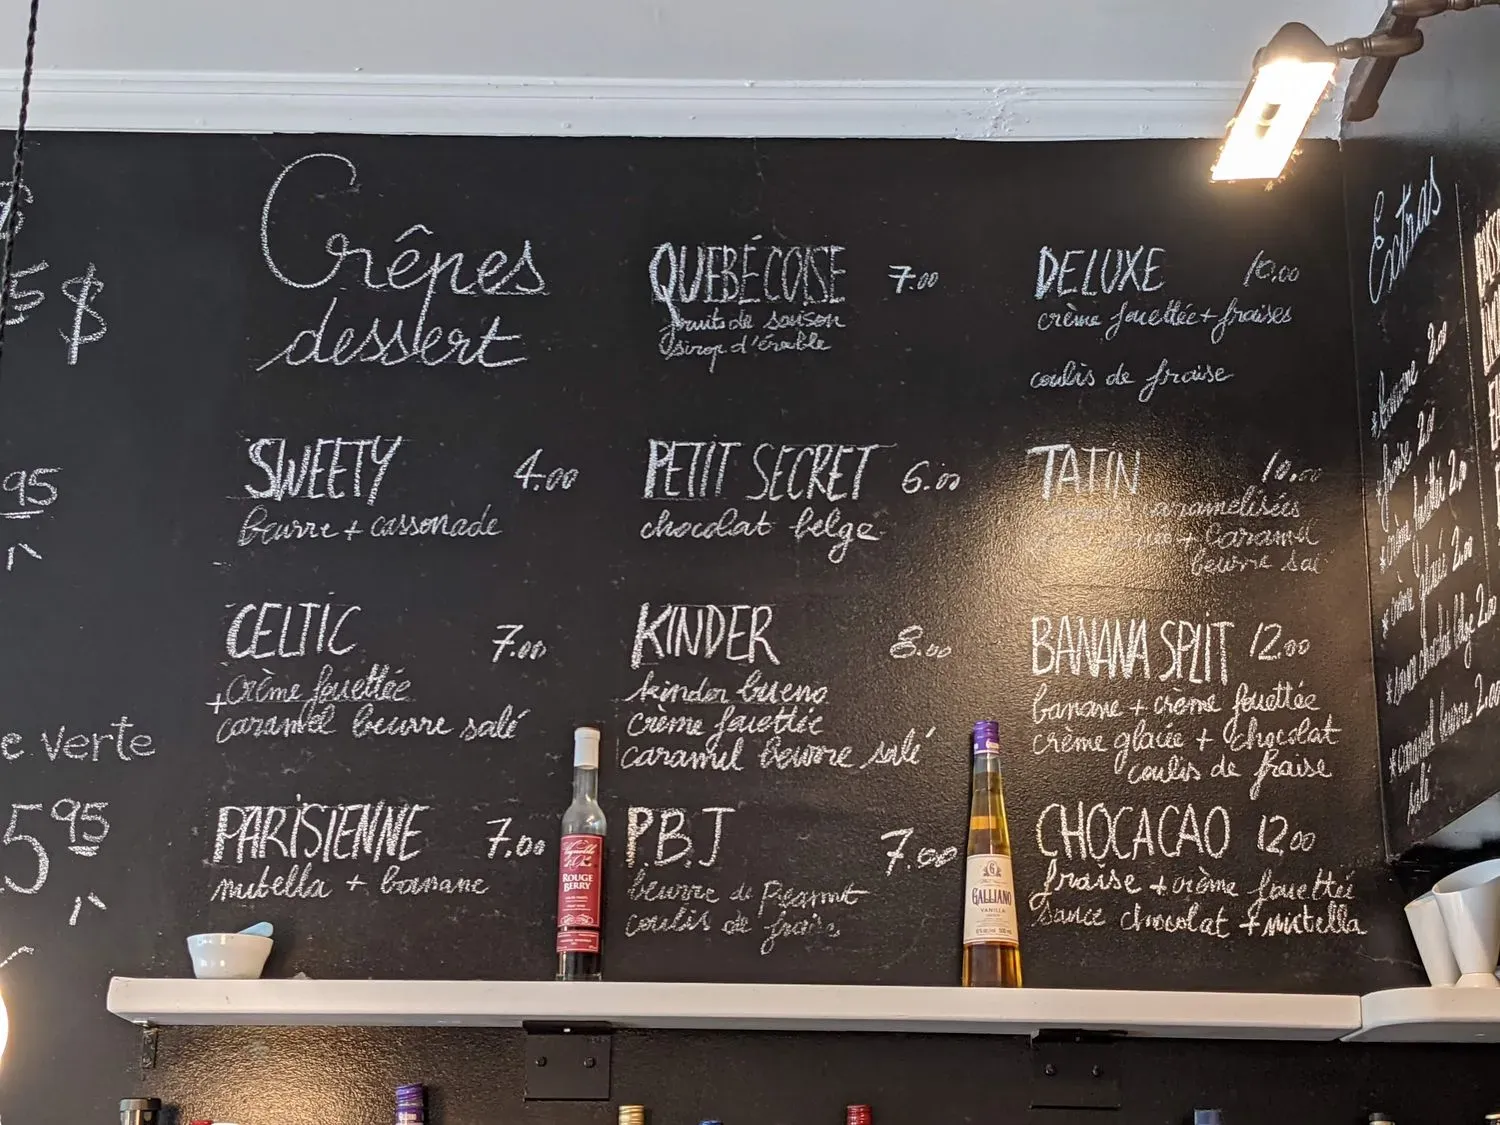 $
5 $
95
e verte
5 95
Crêpes
dessert
SWEETY 4.00
beurre + cassonade
CELTIC 7.00
+ crème fouettée
caramel beurre salé
PARISIENNE 7.00
nutella + banane
QUEBÉCOISE 7.00
fruits de saison
sirop d'érable
PETIT SECRET 6.00
chocolat belge
KINDER 8.00
kinder bueno
crème fouettée
caramel beurre salé
P.B.J 7.00
beurre de Peanut
coulis de fraise
DELUXE 10.00
crème fouettée + fraises
coulis de fraise
TATIN 10.00
caramélisées
+ Caramel
beurre sal
BANANA SPLIT 12.00
banane + crème fouettée
crème glacée + chocolat
coulis de fraise
CHOCACAO 12.00
fraise + crème fouettée
sauce chocolat + nutella
Extras
* banane 2.00
* fraise 2.00
* crème fouettée 2.00
* crème glacée 2.00
* sauce chocolat belge 2.00
* caramel beurre 2.00
salé
ROUGE
BERRY
GALLIANO
VANILLA